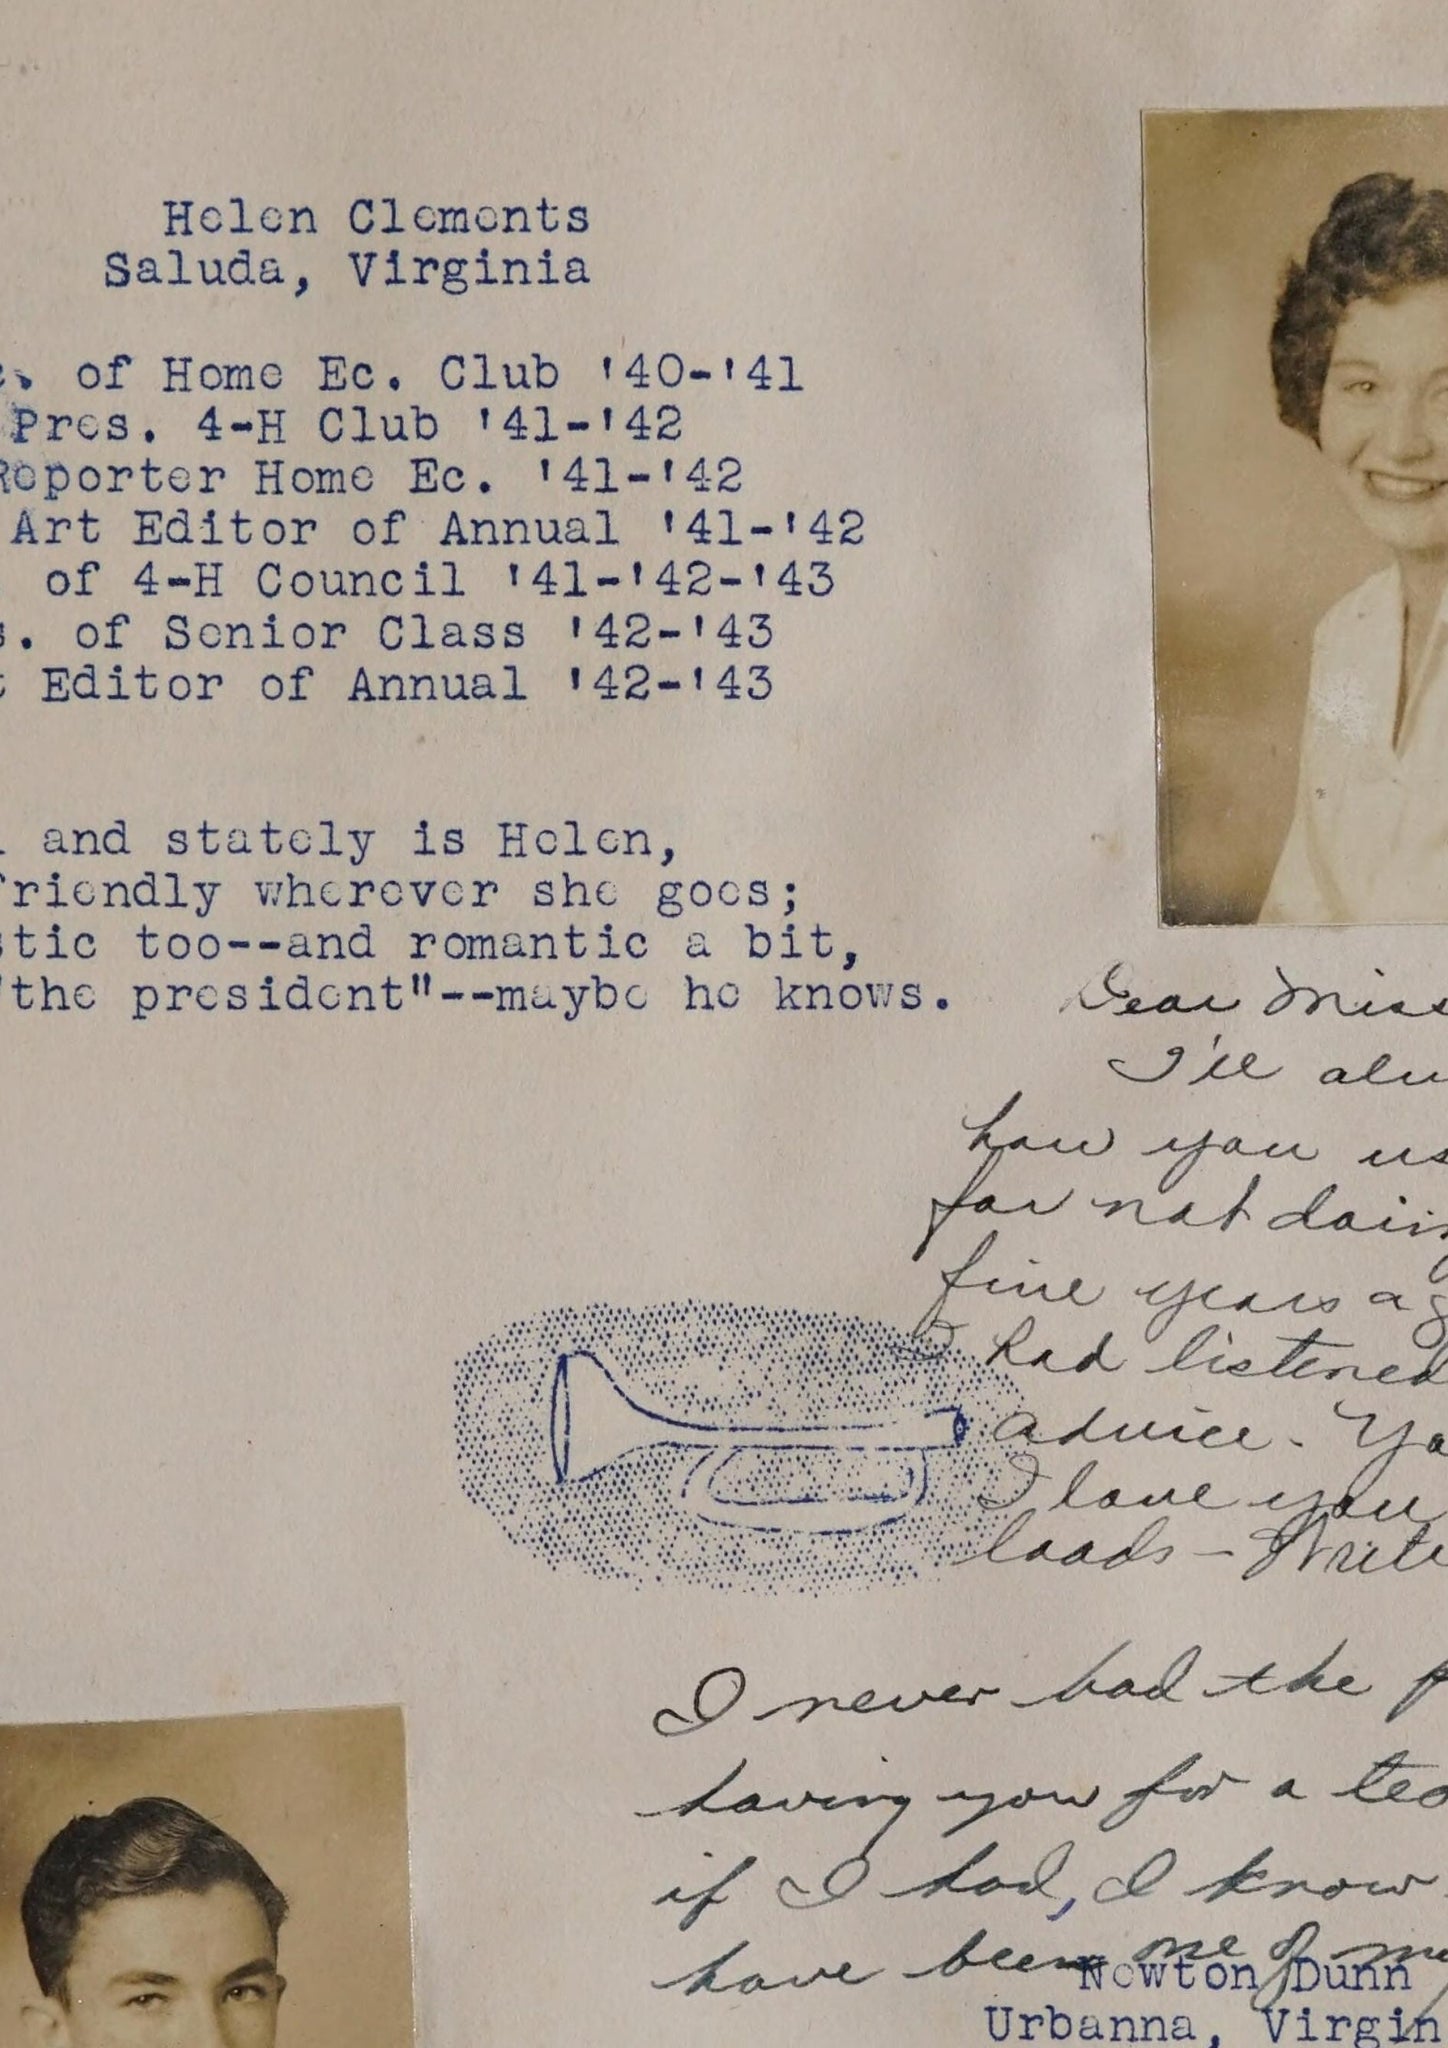 Helen Clements
Saluda, Virginia
c. of Home Ec. Club '40-'41
Pres. 4-H Club '41-'42
Reporter Home Ec. '41-'42
Art Editor of Annual '41-'42
of 4-H Council '41-'42-'43
s. of Senior Class '42-'43
t Editor of Annual '42-'43
and stately is Helen,
friendly wherever she goes;
stic too--and romantic a bit,
"the president"--maybe he knows.
Dear Miss
I'll alw
how you us
for not doing
fine years ag
I had listened
advice. Yo
I love you
loads - Write
I never had the p
having you for a tea
if I had, I know
have been one of my
Newton Dunn
Urbanna, Virgin